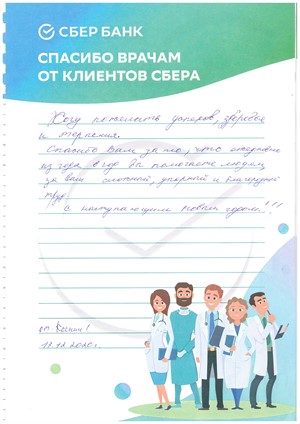 СБЕР БАНК
СПАСИБО ВРАЧАМ
ОТ КЛИЕНТОВ СБЕРА
Хочу пожелать успехов, здоровья
и терпения.
Спасибо Вам за то, что ежедневно
из года в год Вы помогаете людям
за ваш сложный, упорный и благородный
труд.
С наступающим Новым годом!!!
от Ксении!